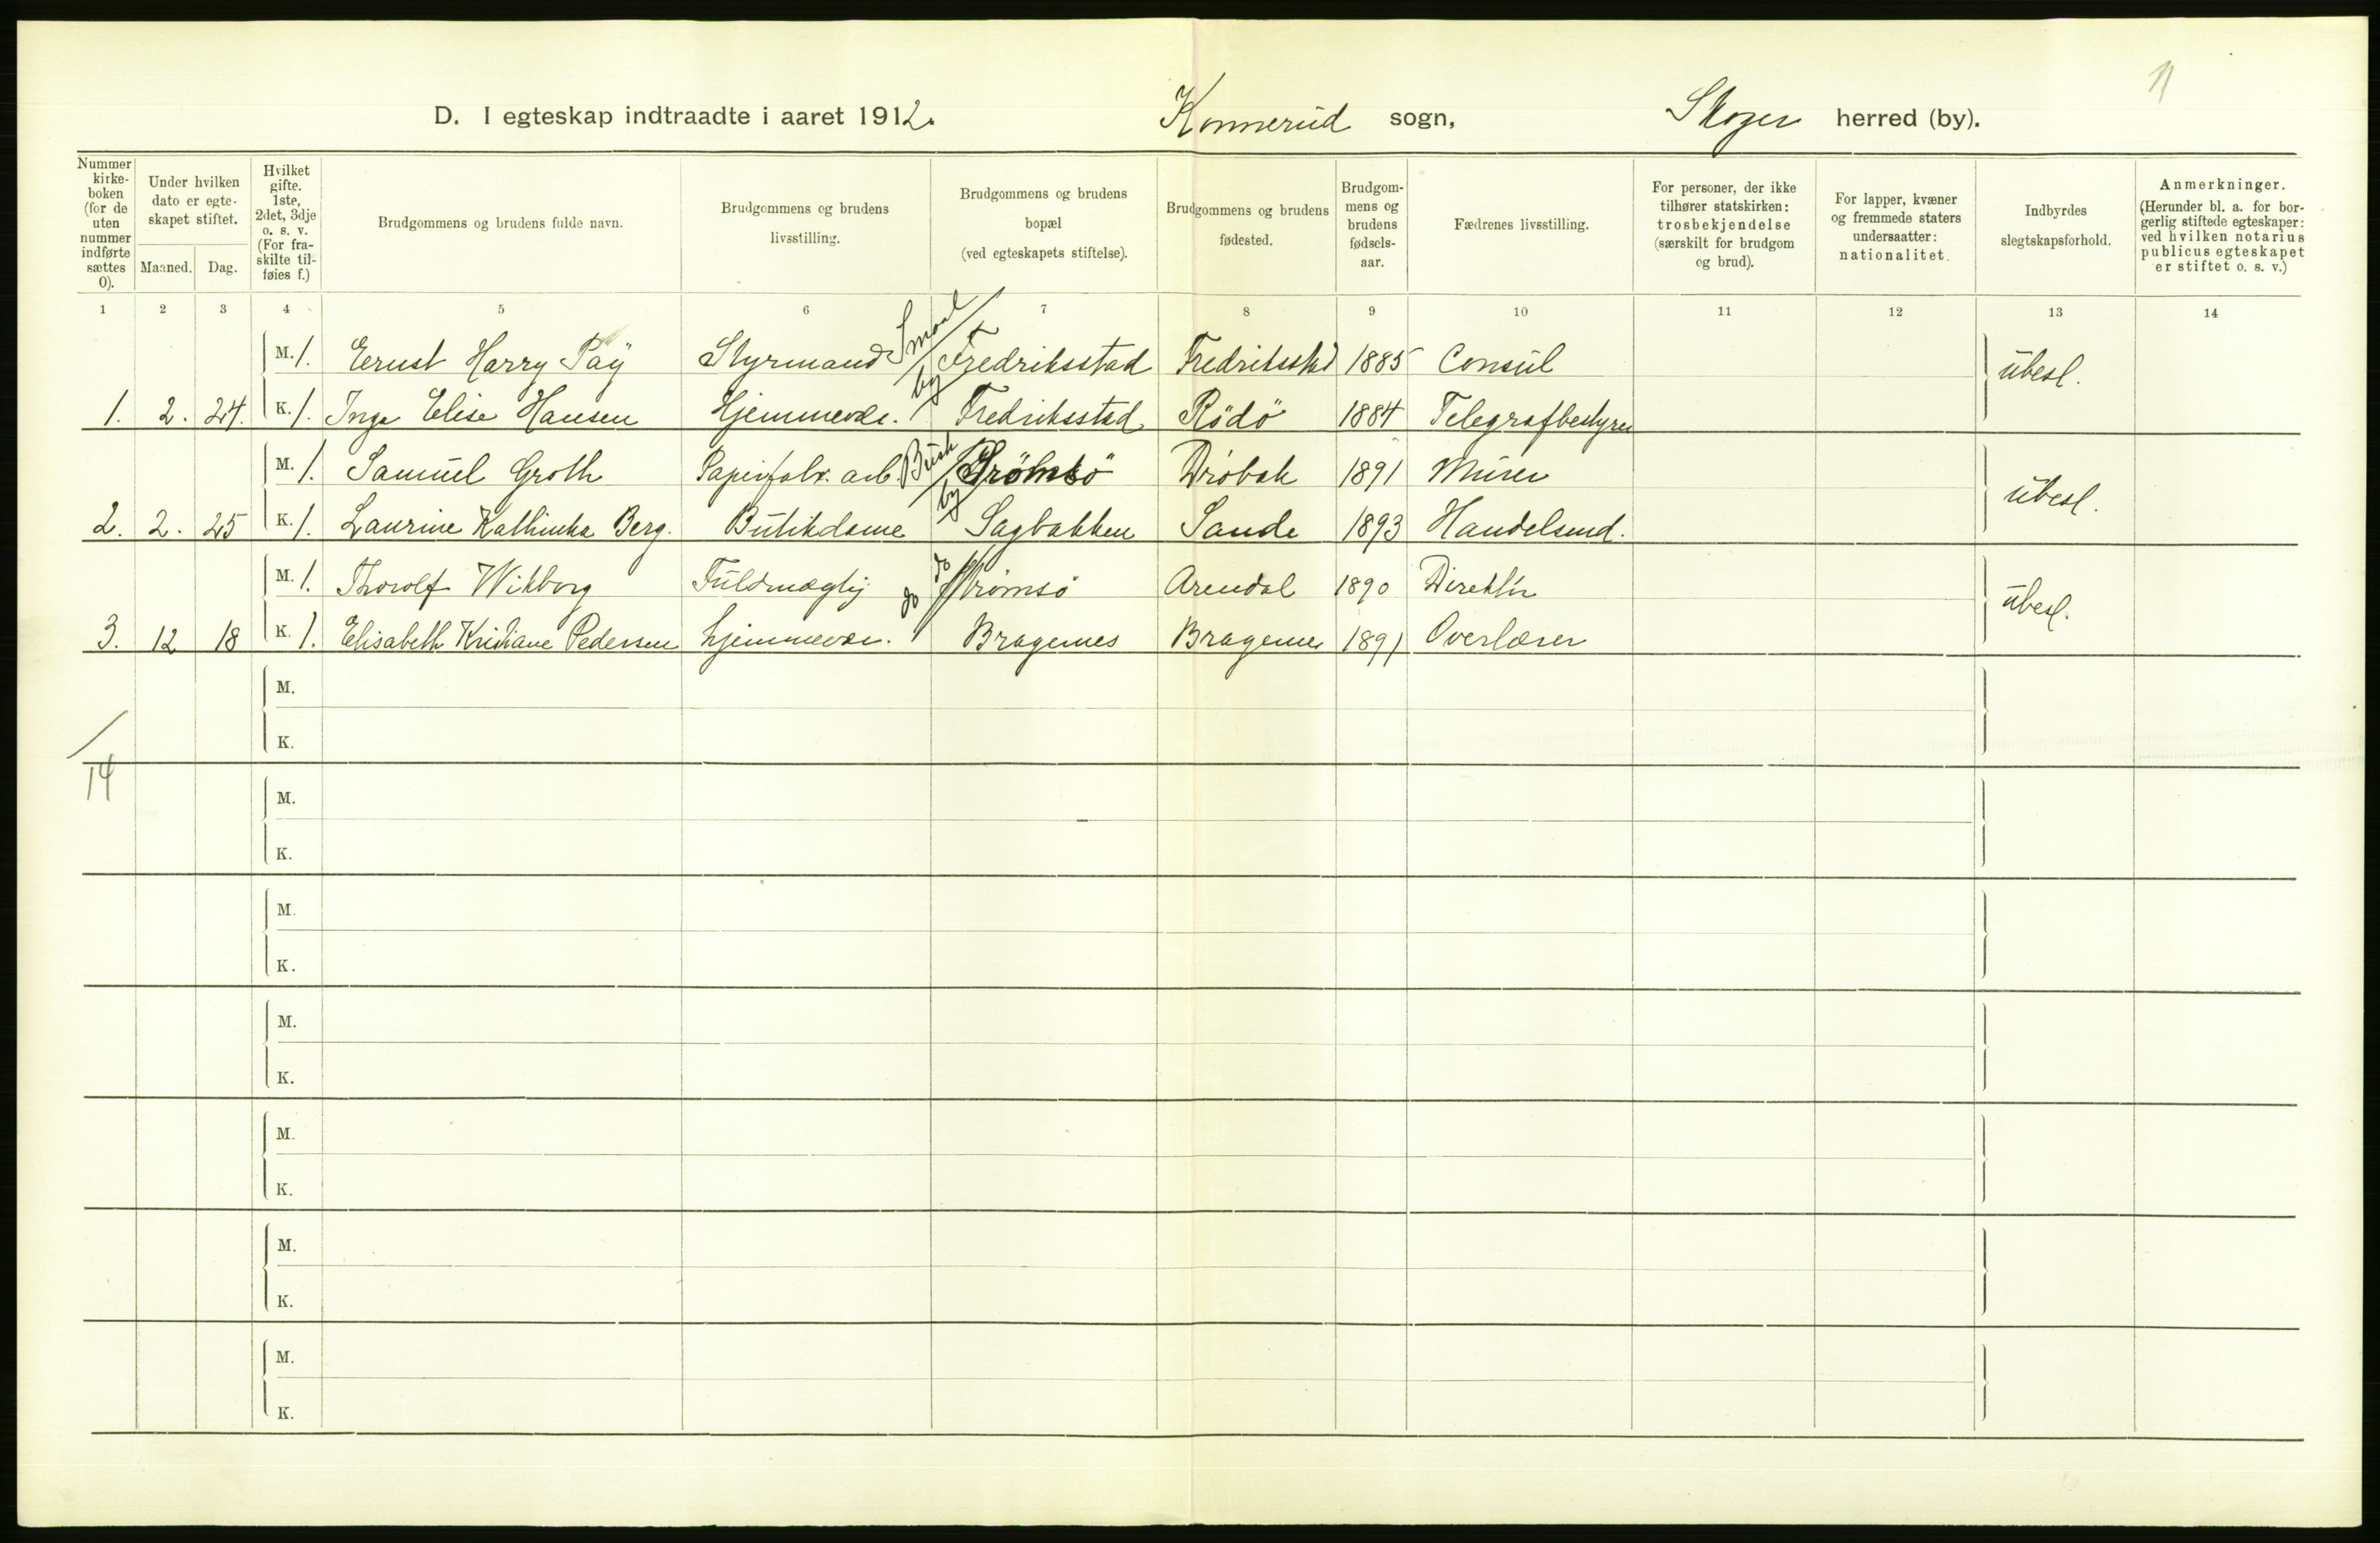 11
D. I egteskap indtraadte i aaret 1912. Konnerud sogn, Skoger herred (by).
Nummer kirke-boken (for de uten nummer indførte sættes 0).
Under hvilken dato er egte-skapet stiftet.
Maaned. Dag.
Hvilket gifte. 1ste, 2det, 3dje o. s. v. (For fra-skilte til-føies f.)
Brudgommens og brudens fulde navn.
Brudgommens og brudens livsstilling.
Brudgommens og brudens bopæl (ved egteskapets stiftelse).
Brudgommens og brudens fødested.
Brudgom-mens og brudens fødsels-aar.
Fædrenes livsstilling.
For personer, der ikke tilhører statskirken: trosbekjendelse (særskilt for brudgom og brud).
For lapper, kvæner og fremmede staters undersaatter: nationalitet.
Indbyrdes slegtskapsforhold.
Anmerkninger. (Herunder bl. a. for bor-gerlig stiftede egteskaper: ved hvilken notarius publicus egteskapet er stiftet o. s. v.)
1 2 3 4 5 6 7 8 9 10 11 12 13 14
M. 1. Ernst Harry Paÿ Styrmand Smaal Fredriksstad Fredriksstad 1885 Consul ubesl.
1. 2. 24. K. 1. Inga Elise Hansen Hjemmevær. by Fredriksstad Rödö 1884 Telegrafbestyrer
M. 1. Samuel Groth Papirfabr. arb. Busk Strömsö Dröbak 1891 Murer ubesl.
2. 2. 25 K. 1. Laurine Kathinka Berg. Butikdame by Sagbakken Sande 1893 Handelsmd.
M. 1. Thorolf Wikborg Fuldmægtig do Strømsö Arendal 1890 Direktör ubesl.
3. 12 18 K. 1. Elisabeth Kristiane Pedersen hjemmevær. do Bragernes Bragernes 1891 Overlærer
M.
K.
14
M.
K.
M.
K.
M.
K.
M.
K.
M.
K.
M.
K.